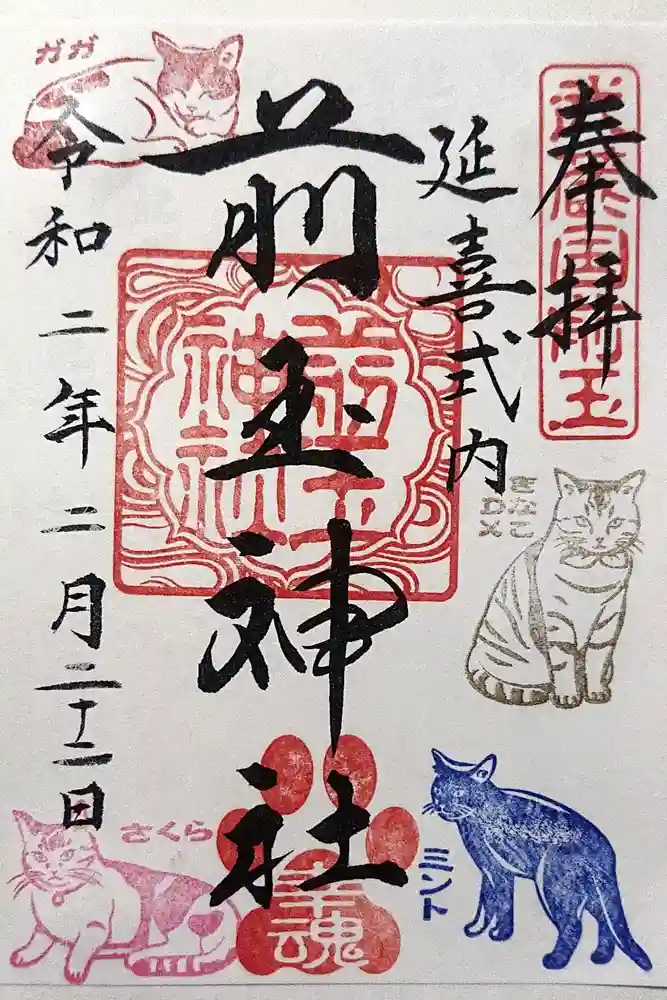 奉拝
武蔵国埼玉
延喜式内
前玉神社
前玉神社
幸魂
令和二年二月二十二日
ガガ
きなこ
DX
ミント
さくら